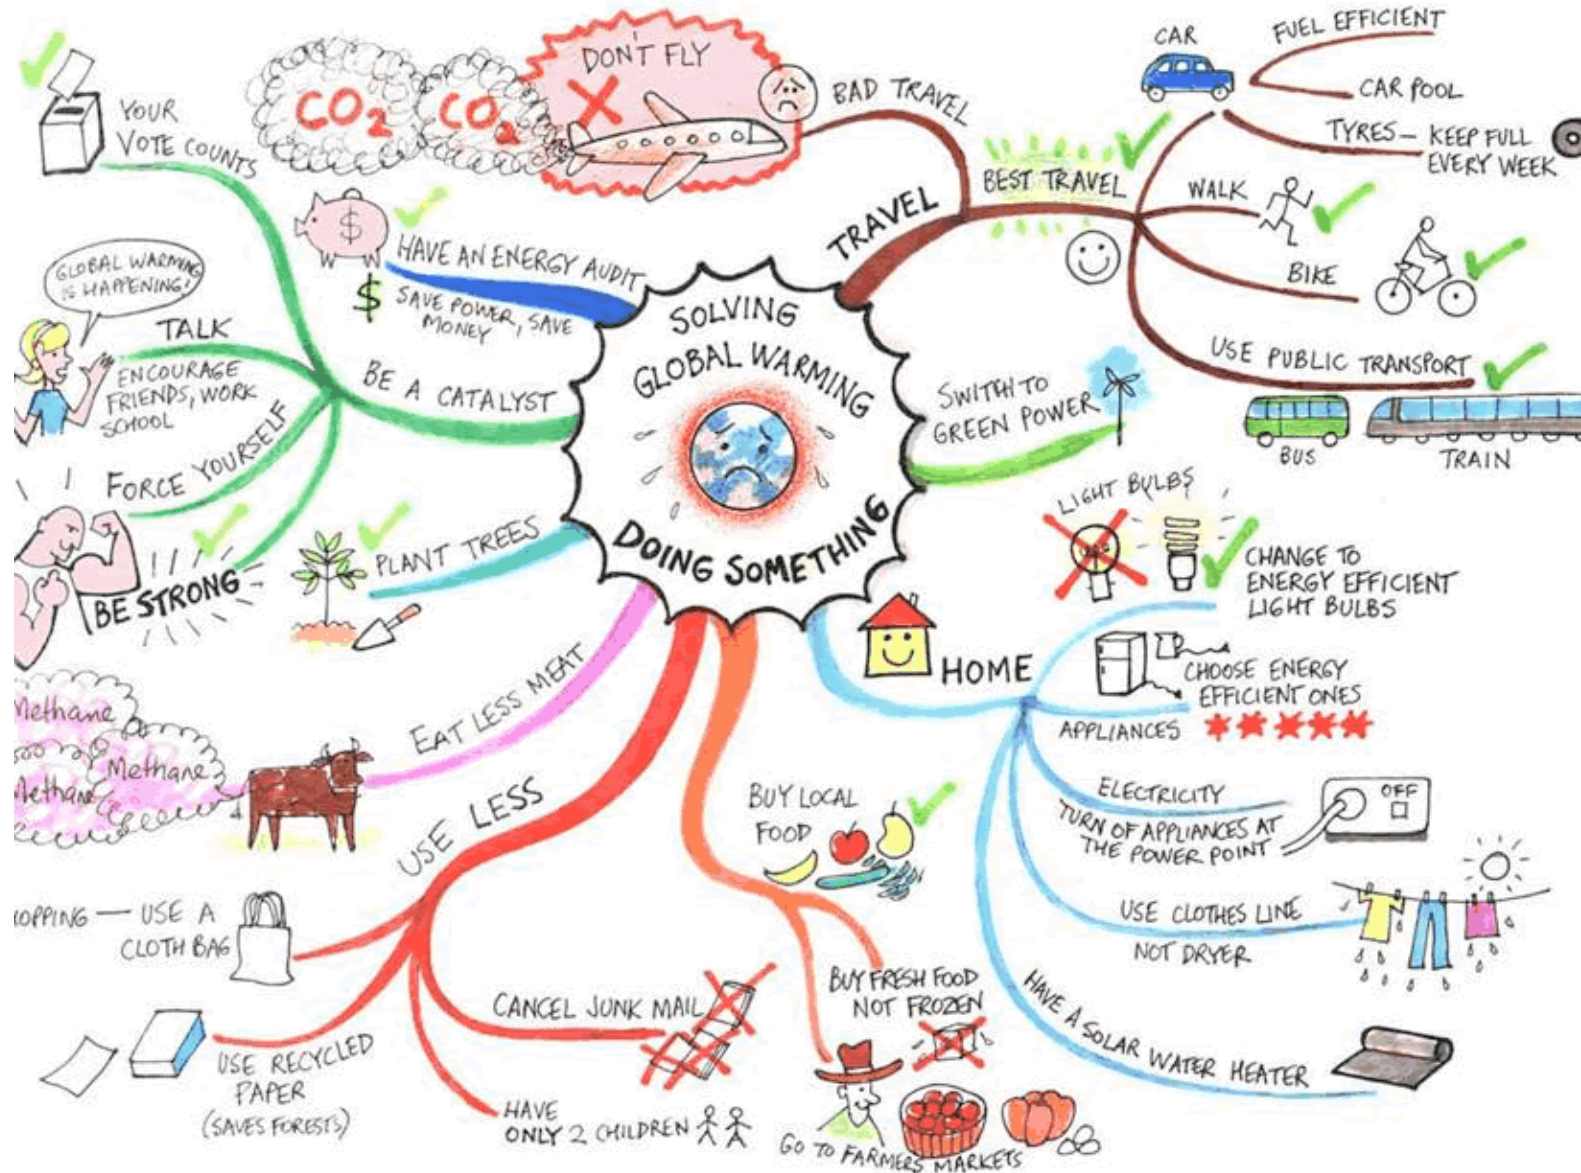 SOLVING
GLOBAL WARMING
DOING SOMETHING
TRAVEL
BAD TRAVEL
DON'T FLY
CO2
CO2
BEST TRAVEL
CAR
FUEL EFFICIENT
CAR POOL
TYRES — KEEP FULL
EVERY WEEK
WALK
BIKE
USE PUBLIC TRANSPORT
BUS
TRAIN
SWITH TO
GREEN POWER
HOME
LIGHT BULBS
CHANGE TO
ENERGY EFFICIENT
LIGHT BULBS
CHOOSE ENERGY
EFFICIENT ONES
APPLIANCES
ELECTRICITY
TURN OF APPLIANCES AT
THE POWER POINT
OFF
USE CLOTHES LINE
NOT DRYER
HAVE A SOLAR WATER HEATER
BUY LOCAL
FOOD
BUY FRESH FOOD
NOT FROZEN
GO TO FARMERS MARKETS
USE LESS
OPPING — USE A
CLOTH BAG
USE RECYCLED
PAPER
(SAVES FORESTS)
CANCEL JUNK MAIL
HAVE
ONLY 2 CHILDREN
EAT LESS MEAT
Methane
Methane
Methane
PLANT TREES
BE A CATALYST
YOUR
VOTE COUNTS
TALK
ENCOURAGE
FRIENDS, WORK
SCHOOL
GLOBAL WARMING
IS HAPPENING!
FORCE YOURSELF
BE STRONG
HAVE AN ENERGY AUDIT
SAVE POWER, SAVE
MONEY
$
$